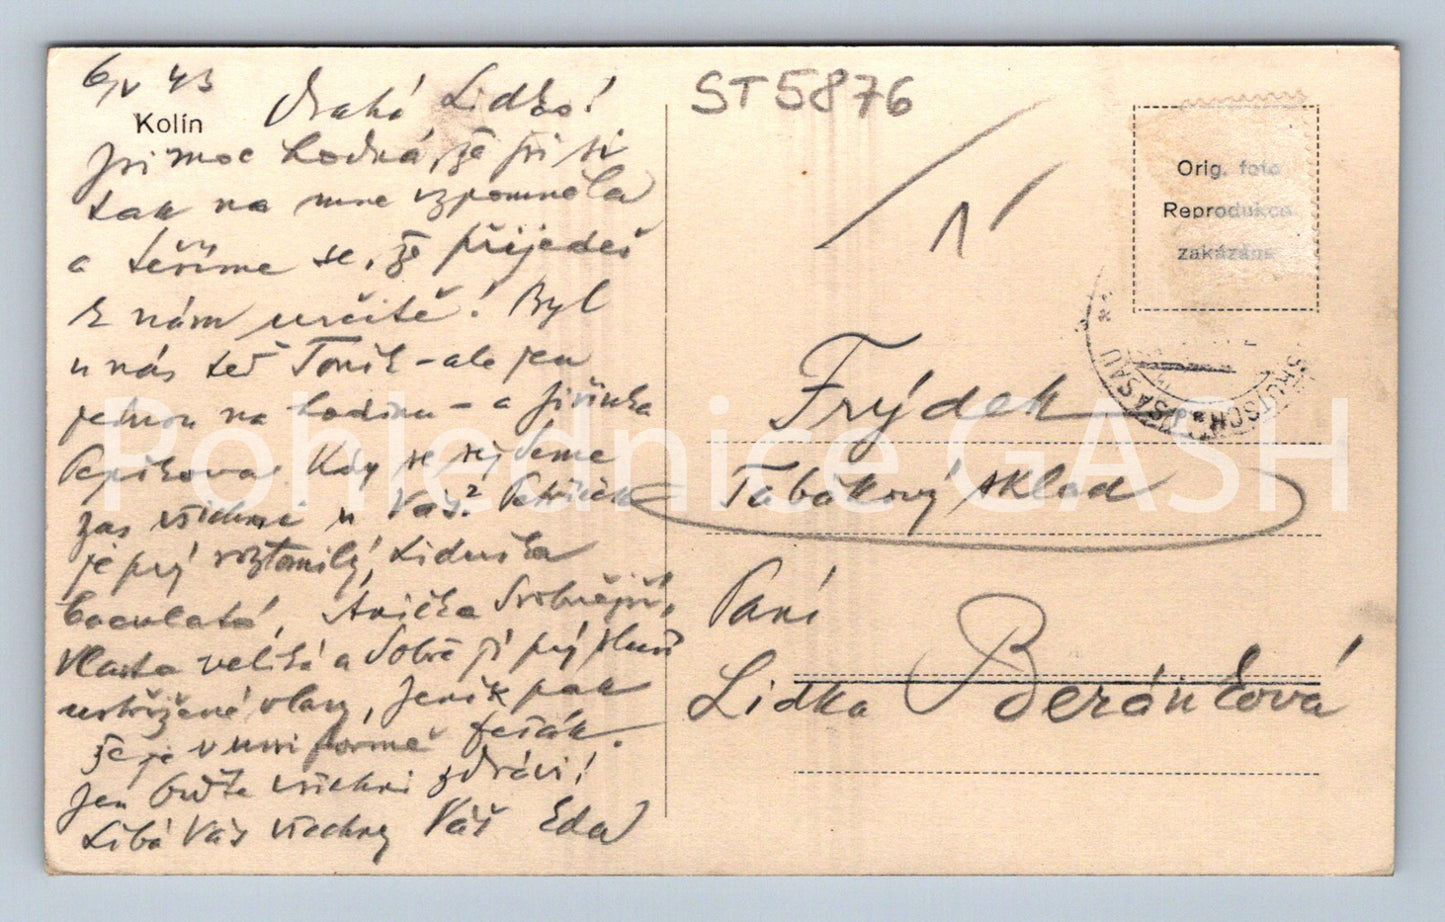 6/V 43
Kolín
Drahá Lidko!
jsi moc hodná, že jsi si
tak na mne vzpomněla
a těšíme se, že přijedeš
k nám určitě! Byl
u nás teď Toník – ale jen
jednou na hodinu – a Jiřinka
Pepíkova. Kdy se sejdeme
zas všichni u Vás?
je prý roztomilý, Liduška
boculatá, Anička
Vlasta veliká a dobře jí prý sluší
ustřižené vlasy, Jeník pak
že je v uniformě fešák.
Jen buďte všichni zdrávi!
Líbá Vás všechny Váš Eda
ST5876
1
Orig. foto
Reprodukce
zakázána
SASAU
Frýdek
Tabákový sklad
Paní
Lidka Beránková
Pohlednice GASH